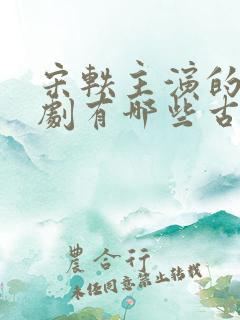 宋轶主演的
劇有哪些古
農合行
未经同意禁止转载